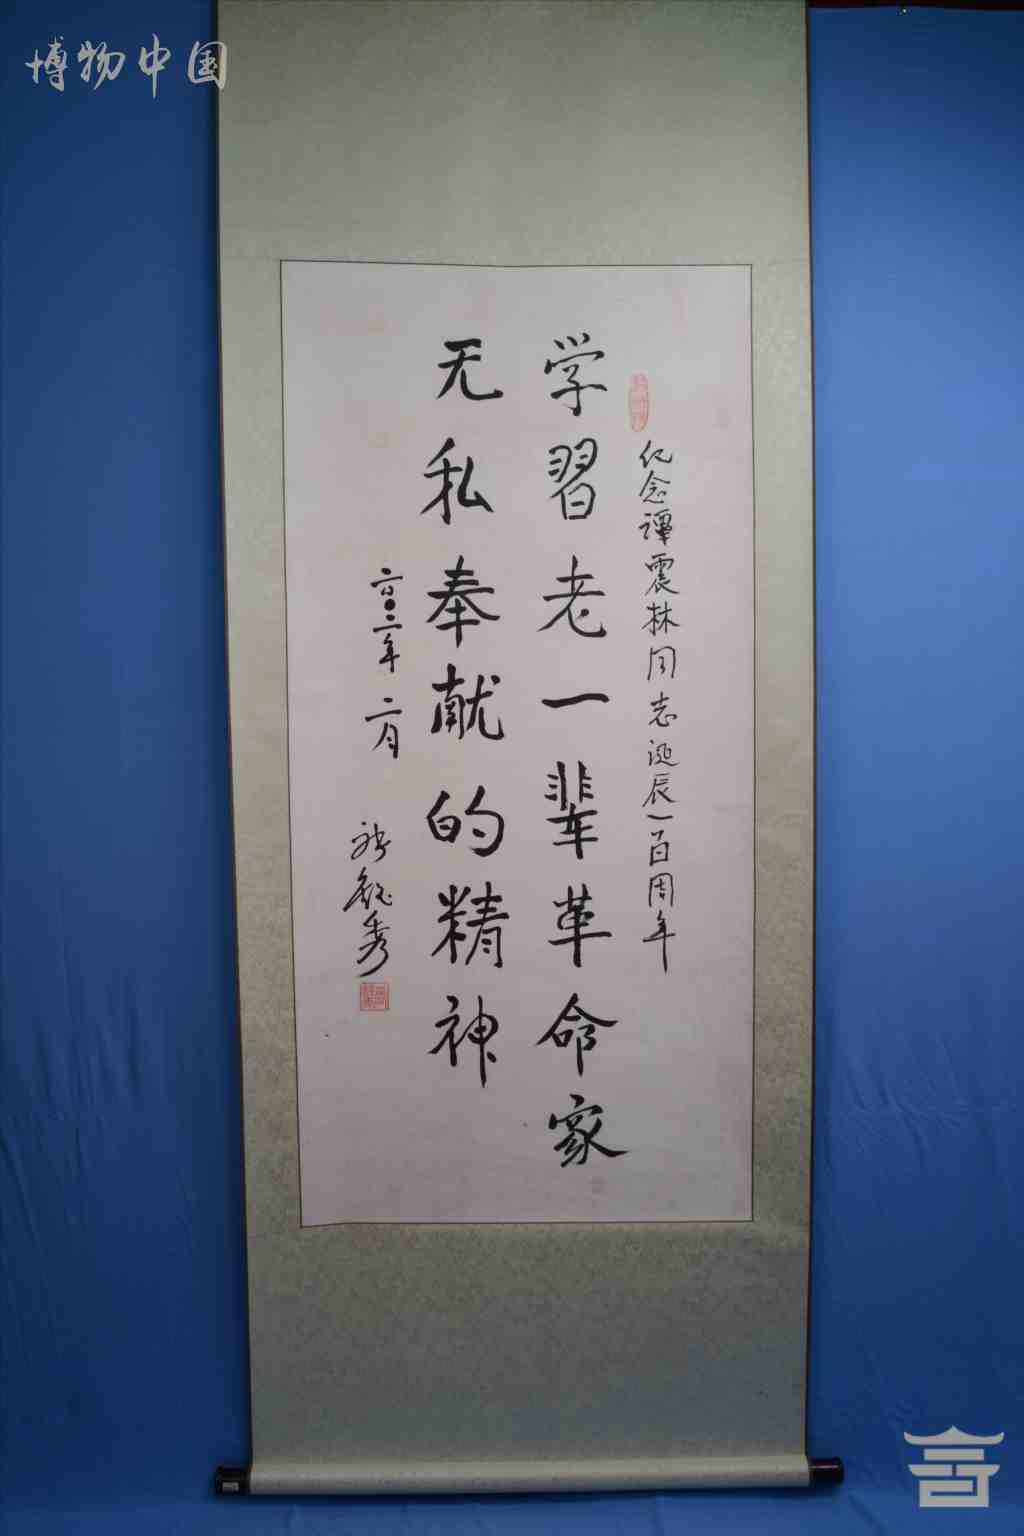 博物中国
纪念谭震林同志诞辰一百周年
学習老一辈革命家
无私奉献的精神
二〇〇二年二月
张钰秀